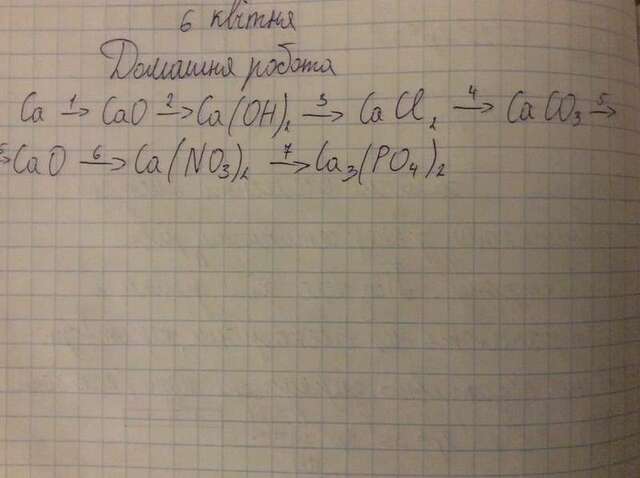 6 квітня
Домашня робота
Ca 1→ CaO 2→ Ca(OH)₂ 3→ CaCl₂ 4→ CaCO₃ 5→
5→ CaO 6→ Ca(NO₃)₂ 7→ Ca₃(PO₄)₂